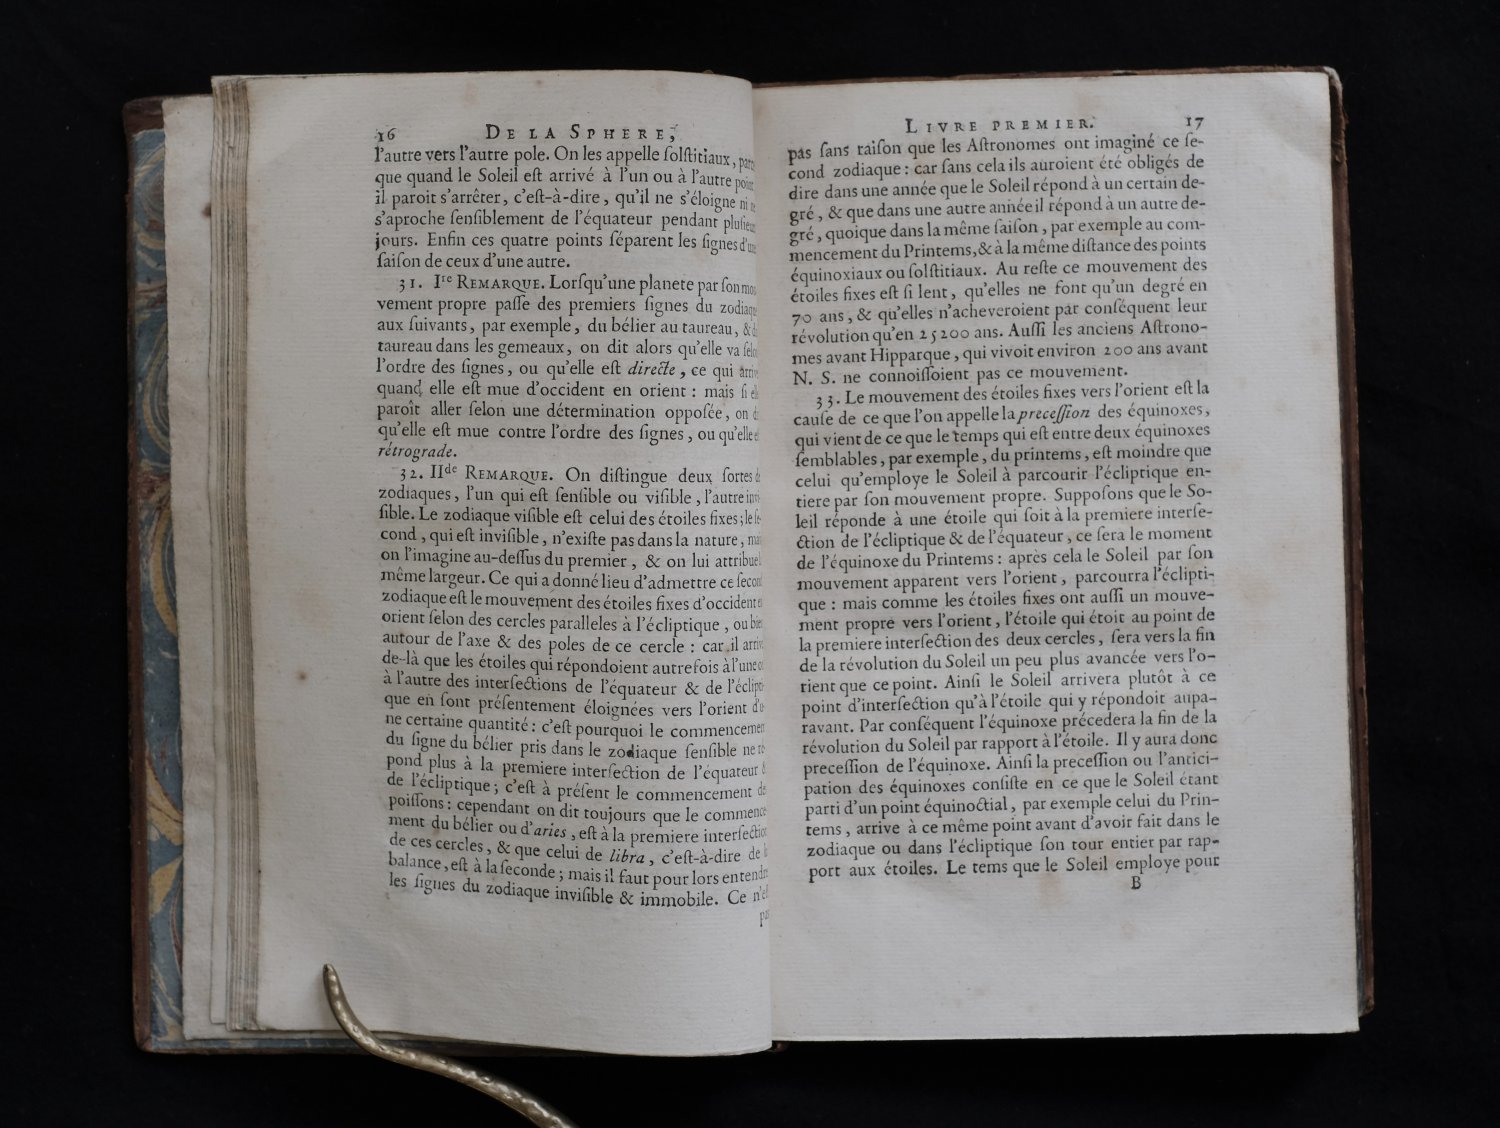 16 DE LA SPHERE,
l'autre vers l'autre pole. On les appelle ſolſtitiaux, par
que quand le Soleil eſt arrivé à l'un ou à l'autre poin
il paroit s'arrêter, c'eſt-à-dire, qu'il ne s'éloigne ni ne
s'aproche ſenſiblement de l'équateur pendant pluſieur
jours. Enfin ces quatre points ſéparent les ſignes d'une
ſaiſon de ceux d'une autre.
31. Ire REMARQUE. Lorſqu'une planete par ſon mou
vement propre paſſe des premiers ſignes du zodiaque
aux ſuivants, par exemple, du bélier au taureau, & du
taureau dans les gemeaux, on dit alors qu'elle va ſelon
l'ordre des ſignes, ou qu'elle eſt directe, ce qui arrive
quand elle eſt mue d'occident en orient : mais ſi elle
paroît aller ſelon une détermination oppoſée, on di
qu'elle eſt mue contre l'ordre des ſignes, ou qu'elle e
rétrograde.
32. IIde REMARQUE. On diſtingue deux ſortes de
zodiaques, l'un qui eſt ſenſible ou viſible, l'autre invi-
ſible. Le zodiaque viſible eſt celui des étoiles fixes; le ſe-
cond, qui eſt inviſible, n'exiſte pas dans la nature, mai
on l'imagine au-deſſus du premier, & on lui attribue l
même largeur. Ce qui a donné lieu d'admettre ce ſecond
zodiaque eſt le mouvement des étoiles fixes d'occident en
orient ſelon des cercles paralleles à l'écliptique, ou bien
autour de l'axe & des poles de ce cercle : car il arrive
de-là que les étoiles qui répondoient autrefois à l'une ou
à l'autre des interſections de l'équateur & de l'éclipti-
que en ſont préſentement éloignées vers l'orient d'u-
ne certaine quantité : c'eſt pourquoi le commencement
du ſigne du bélier pris dans le zodiaque ſenſible ne ré-
pond plus à la premiere interſection de l'équateur &
de l'écliptique; c'eſt à préſent le commencement des
poiſſons : cependant on dit toujours que le commence-
ment du bélier ou d'aries, eſt à la premiere interſection
de ces cercles, & que celui de libra, c'eſt-à-dire de la
balance, eſt à la ſeconde; mais il faut pour lors entendre
les ſignes du zodiaque inviſible & immobile. Ce n'eſt
pas
LIVRE PREMIER. 17
pas ſans raiſon que les Aſtronomes ont imaginé ce ſe-
cond zodiaque : car ſans cela ils auroient été obligés de
dire dans une année que le Soleil répond à un certain de-
gré, & que dans une autre année il répond à un autre de-
gré, quoique dans la même ſaiſon, par exemple au com-
mencement du Printems, & à la même diſtance des points
équinoxiaux ou ſolſtitiaux. Au reſte ce mouvement des
étoiles fixes eſt ſi lent, qu'elles ne font qu'un degré en
70 ans, & qu'elles n'acheveroient par conſéquent leur
révolution qu'en 25200 ans. Auſſi les anciens Aſtrono-
mes avant Hipparque, qui vivoit environ 200 ans avant
N. S. ne connoiſſoient pas ce mouvement.
33. Le mouvement des étoiles fixes vers l'orient eſt la
cauſe de ce que l'on appelle la preceſſion des équinoxes,
qui vient de ce que le temps qui eſt entre deux équinoxes
ſemblables, par exemple, du printems, eſt moindre que
celui qu'employe le Soleil à parcourir l'écliptique en-
tiere par ſon mouvement propre. Suppoſons que le So-
leil réponde à une étoile qui ſoit à la premiere interſe-
ction de l'écliptique & de l'équateur, ce ſera le moment
de l'équinoxe du Printems : après cela le Soleil par ſon
mouvement apparent vers l'orient, parcourra l'éclipti-
que : mais comme les étoiles fixes ont auſſi un mouve-
ment propre vers l'orient, l'étoile qui étoit au point de
la premiere interſection des deux cercles, ſera vers la fin
de la révolution du Soleil un peu plus avancée vers l'o-
rient que ce point. Ainſi le Soleil arrivera plutôt à ce
point d'interſection qu'à l'étoile qui y répondoit aupa-
ravant. Par conſéquent l'équinoxe précedera la fin de la
révolution du Soleil par rapport à l'étoile. Il y aura donc
preceſſion de l'équinoxe. Ainſi la preceſſion ou l'antici-
pation des équinoxes conſiſte en ce que le Soleil étant
parti d'un point équinoctial, par exemple celui du Prin-
tems, arrive à ce même point avant d'avoir fait dans le
zodiaque ou dans l'écliptique ſon tour entier par rap-
port aux étoiles. Le tems que le Soleil employe pour
B